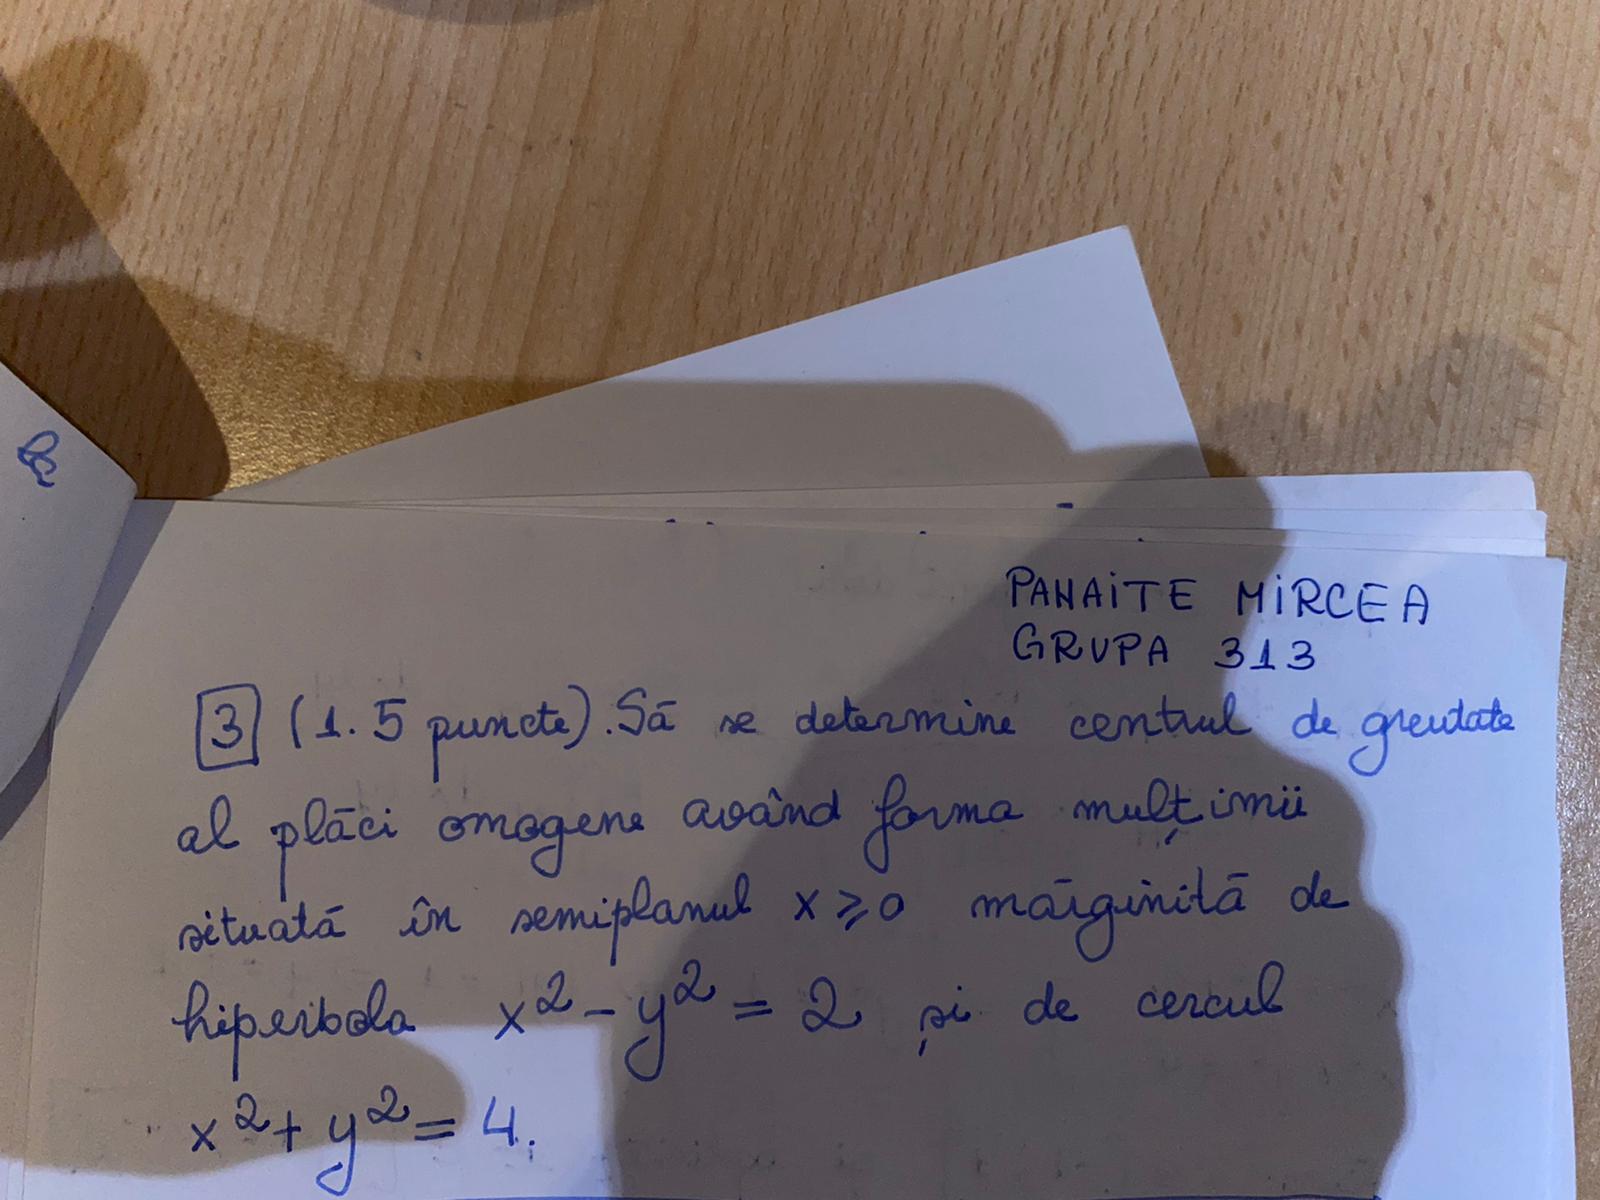 PANAITE MIRCEA
GRUPA 313
3 (1.5 puncte). Să se determine centrul de greutate
al plăci omogene având forma mulțimii
situată în semiplanul x ⩾ 0 mărginită de
hiperbola x² - y² = 2 și de cercul
x² + y² = 4.